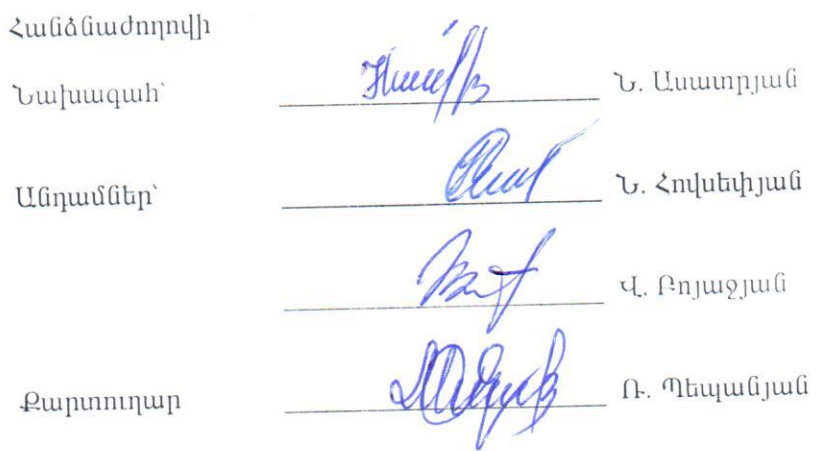 Հանձնաժողովի
Նախագահ՝ Ն. Ասատրյան
Անդամներ՝ Ն. Հովսեփյան
Վ. Բոյաջյան
Քարտուղար Ռ. Պեպանյան